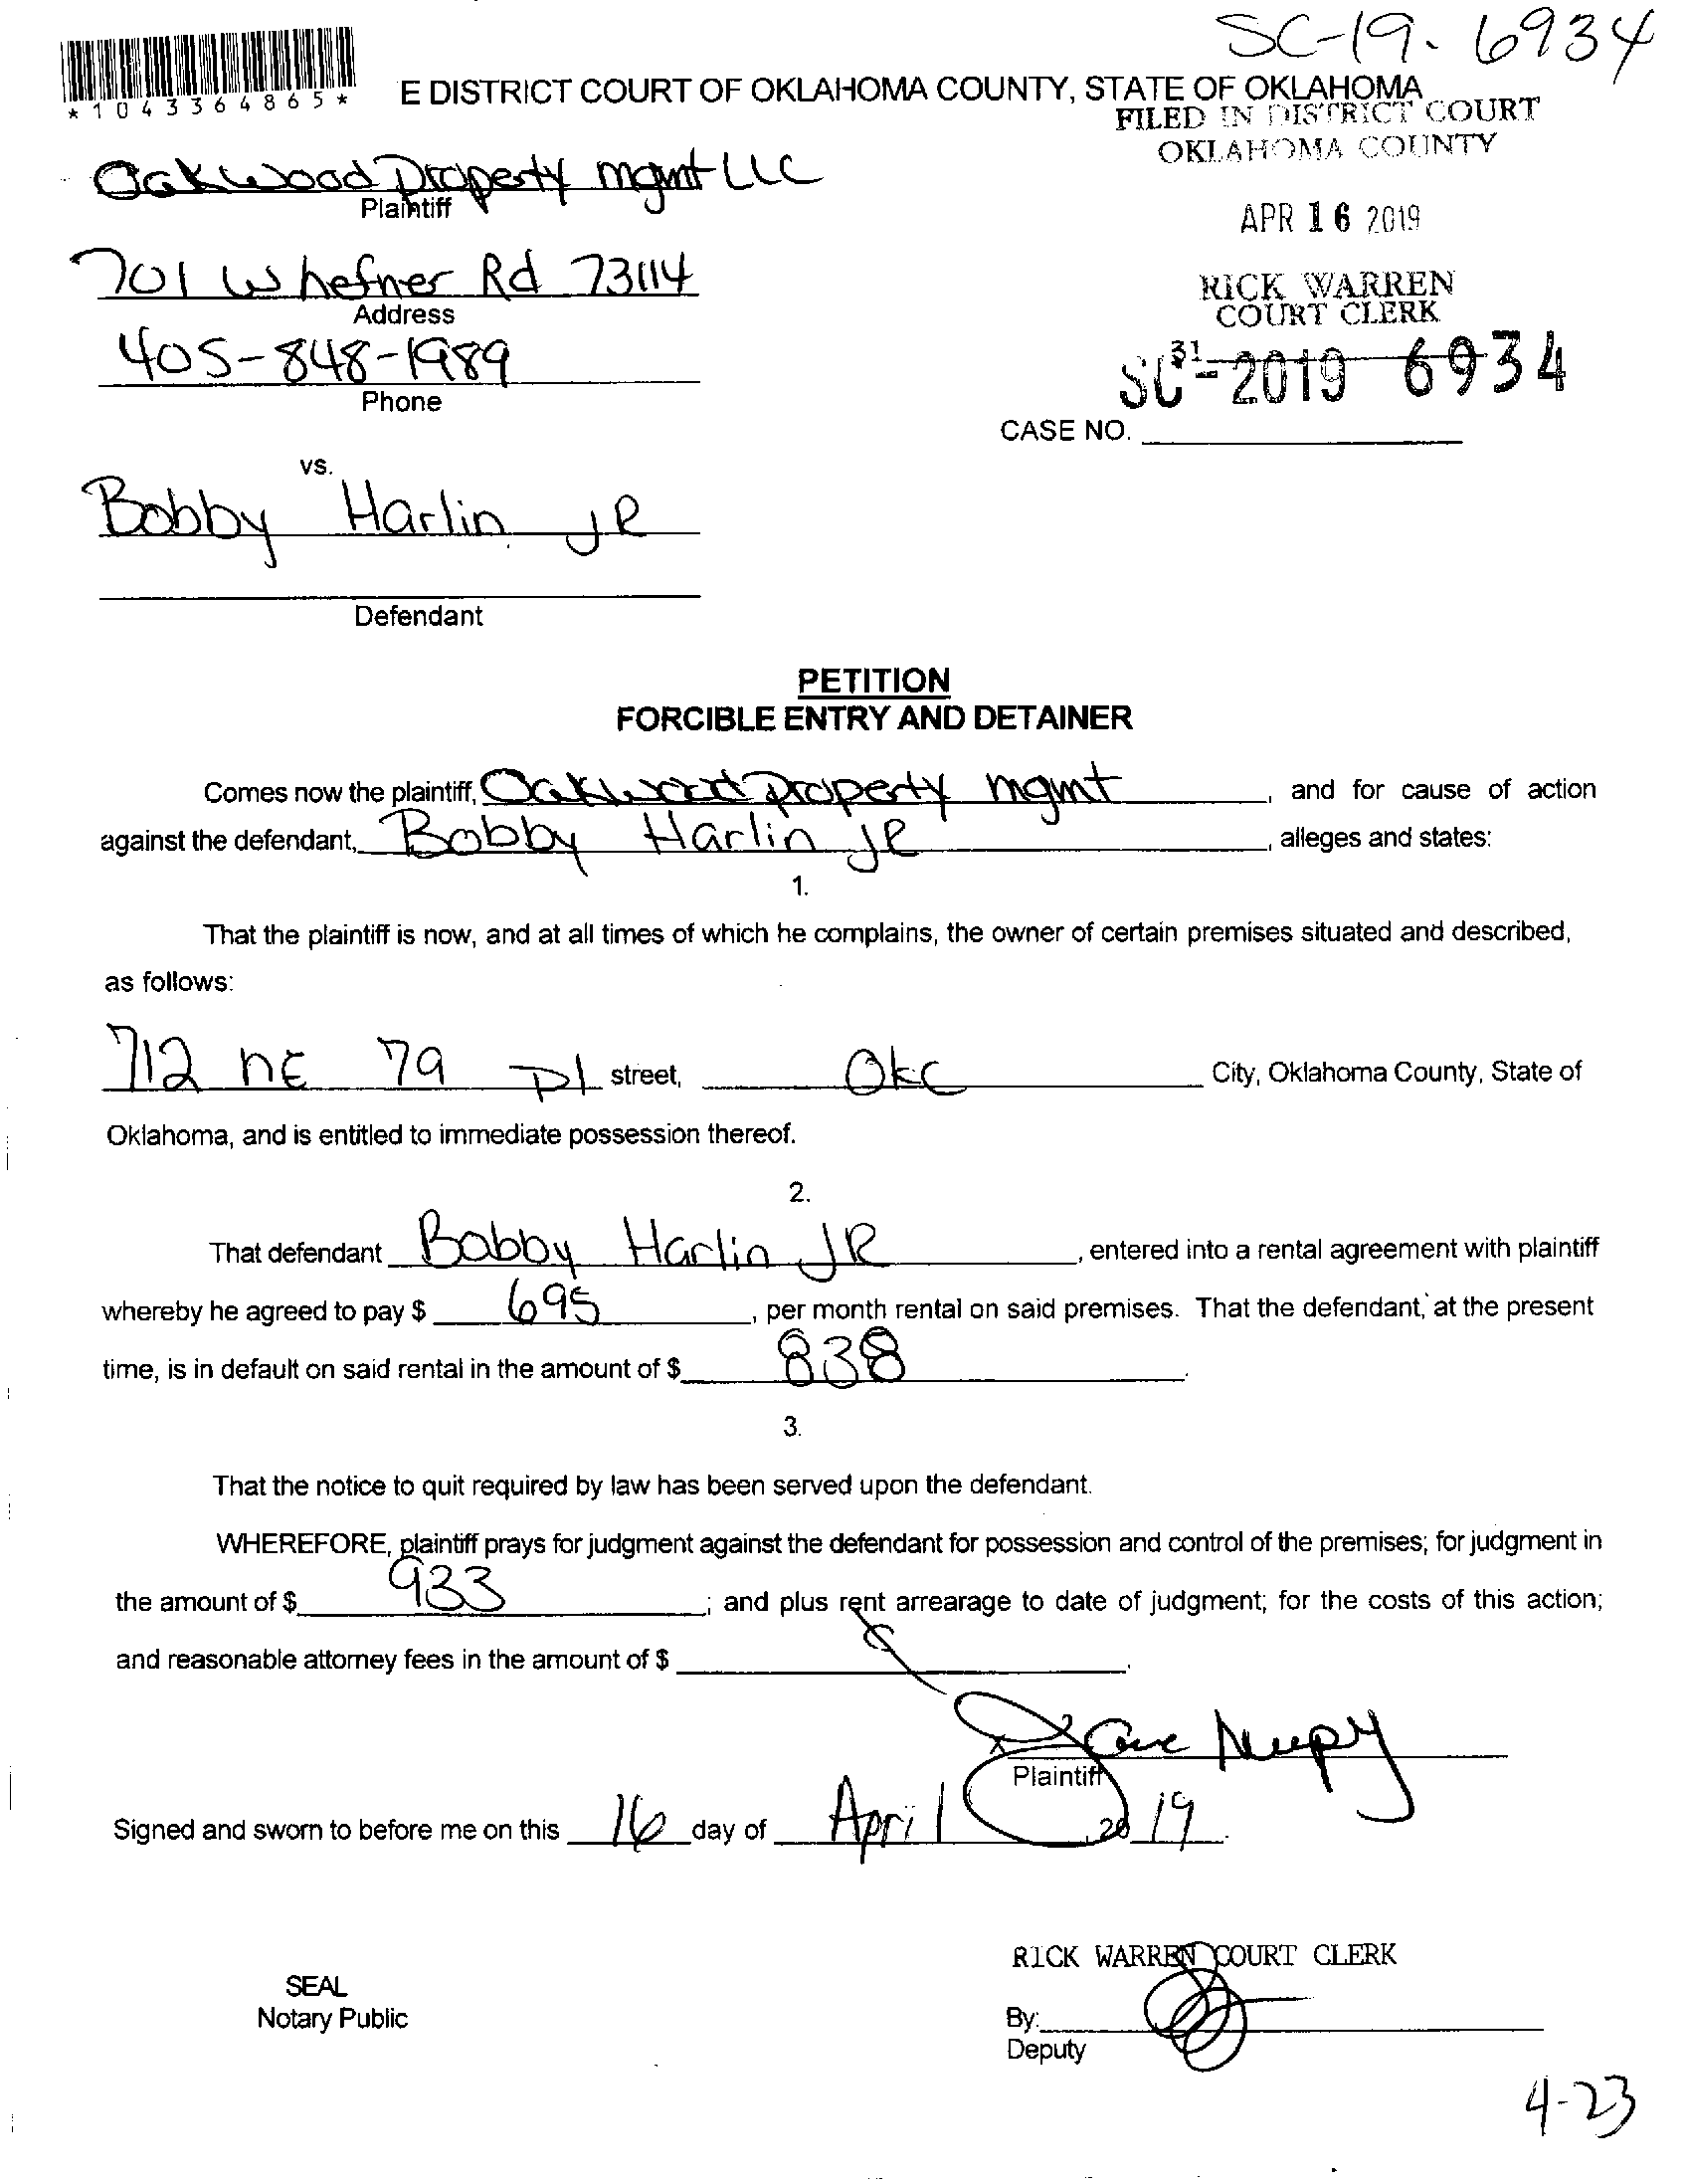 SC-19-6934
*1043364865*
E DISTRICT COURT OF OKLAHOMA COUNTY, STATE OF OKLAHOMA
FILED IN DISTRICT COURT
OKLAHOMA COUNTY
Oakwood Property mgmt LLC
Plaintiff
APR 16 2019
701 W hefner Rd 73114
Address
RICK WARREN
COURT CLERK
405-848-1989
Phone
31
SC-2019 6934
CASE NO.
vs.
Bobby Harlin JR
Defendant
PETITION
FORCIBLE ENTRY AND DETAINER
Comes now the plaintiff, Oakwood Property mgmt, and for cause of action
against the defendant, Bobby Harlin JR, alleges and states:
1.
That the plaintiff is now, and at all times of which he complains, the owner of certain premises situated and described,
as follows:
712 NE 79 Pl street, OKC City, Oklahoma County, State of
Oklahoma, and is entitled to immediate possession thereof.
2.
That defendant Bobby Harlin JR, entered into a rental agreement with plaintiff
whereby he agreed to pay $ 695, per month rental on said premises. That the defendant, at the present
time, is in default on said rental in the amount of $ 838.
3.
That the notice to quit required by law has been served upon the defendant.
WHEREFORE, plaintiff prays for judgment against the defendant for possession and control of the premises; for judgment in
the amount of $ 933; and plus rent arrearage to date of judgment; for the costs of this action;
and reasonable attorney fees in the amount of $ .
x
Plaintiff
Signed and sworn to before me on this 16 day of April, 20 19.
RICK WARREN COURT CLERK
SEAL
Notary Public
By:
Deputy
4-23